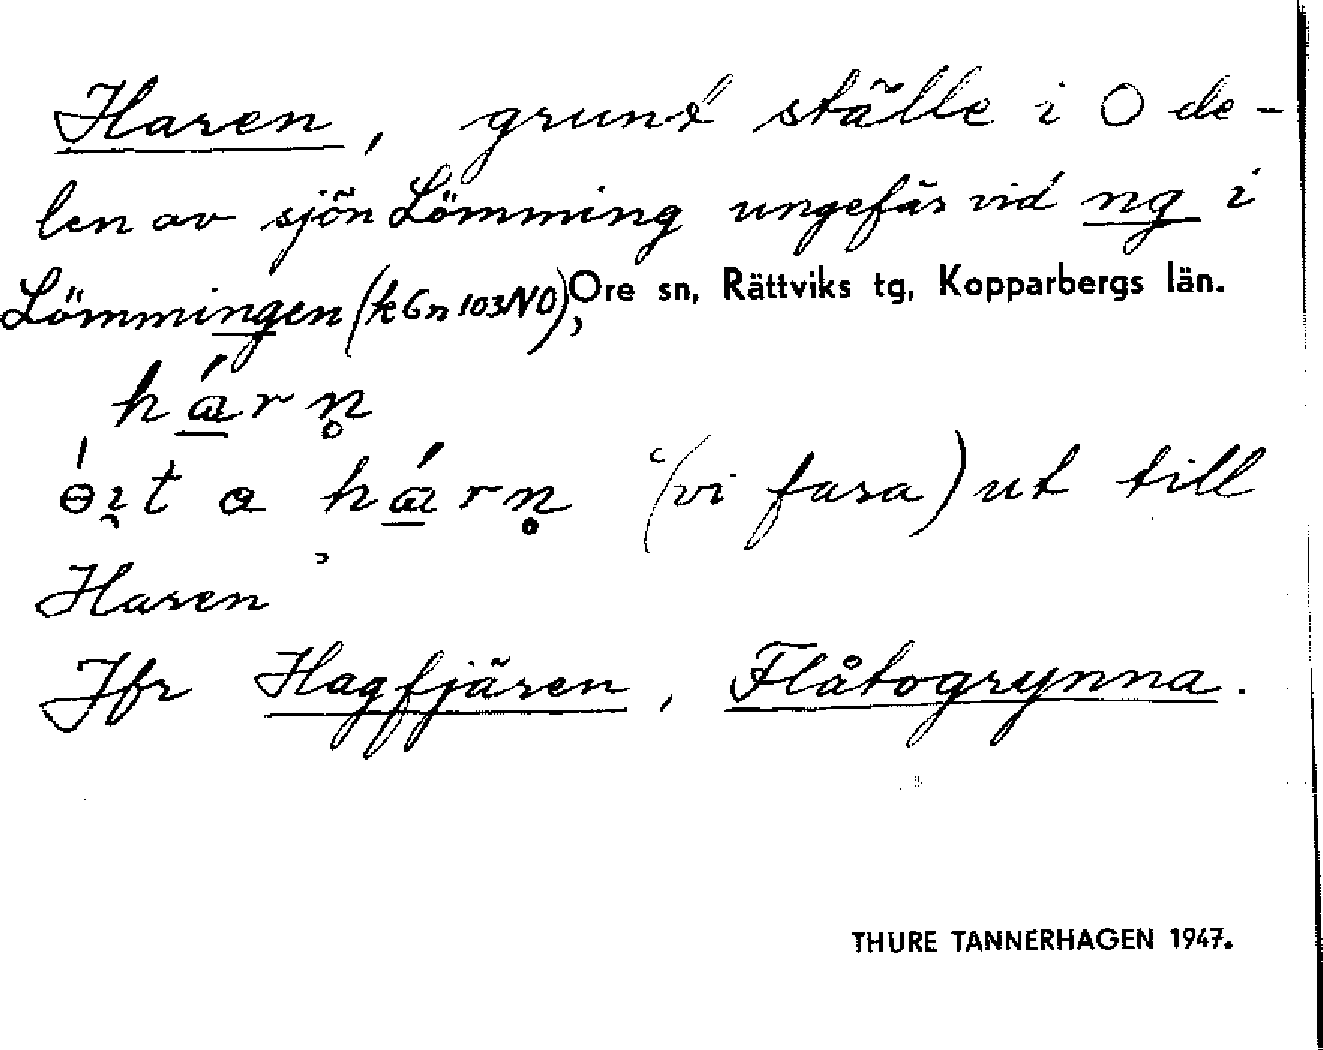 Haren, grunt ställe i O de-
len av sjön Lömming ungefär vid ng i
Lömmingen (k Gn 103 NO), Ore sn, Rättviks tg, Kopparbergs län.
hárn̥
t a hárn̥ ʿ(vi fara) ut till
Harenʾ
Jfr Hagfjären, Flåtogrynna.
THURE TANNERHAGEN 1947.